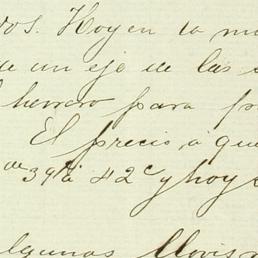 os. Hoy en la m
de un eje de las
herrero para p
El precio, a que
de 39 á 42c y hoy
algunas llovis